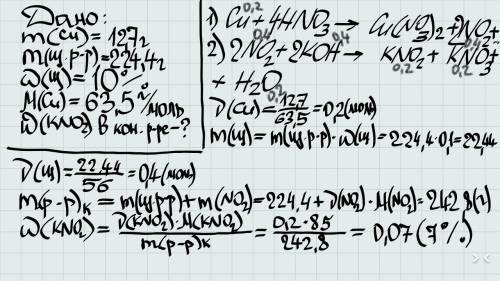 Дано:
m(Cu)=127г
m(щ.р-р)=224,4г
ω(щ)=10%
M(Cu)=63,5 г/моль
ω(KNO₂) в кон. р-ре-?
1) Cu+4HNO₃→Cu(NO₃)₂+2NO₂+
0,2 0,4
2) 2NO₂+2KOH→KNO₂+KNO₃+
0,4 0,4 0,2 0,2
+H₂O
0,2
ν(Cu)=127/63,5=0,2(моль)
m(щ)=m(щ.р-р)·ω(щ)=224,4·0,1=22,44
ν(щ)=22,44/56=0,4(моль)
m(р-р)к=m(щ.р-р)+m(NO₂)=224,4+ν(NO₂)·M(NO₂)=242,8(г)
ω(KNO₂)=ν(KNO₂)·M(KNO₂)/m(р-р)к=0,2·85/242,8=0,07(7%)